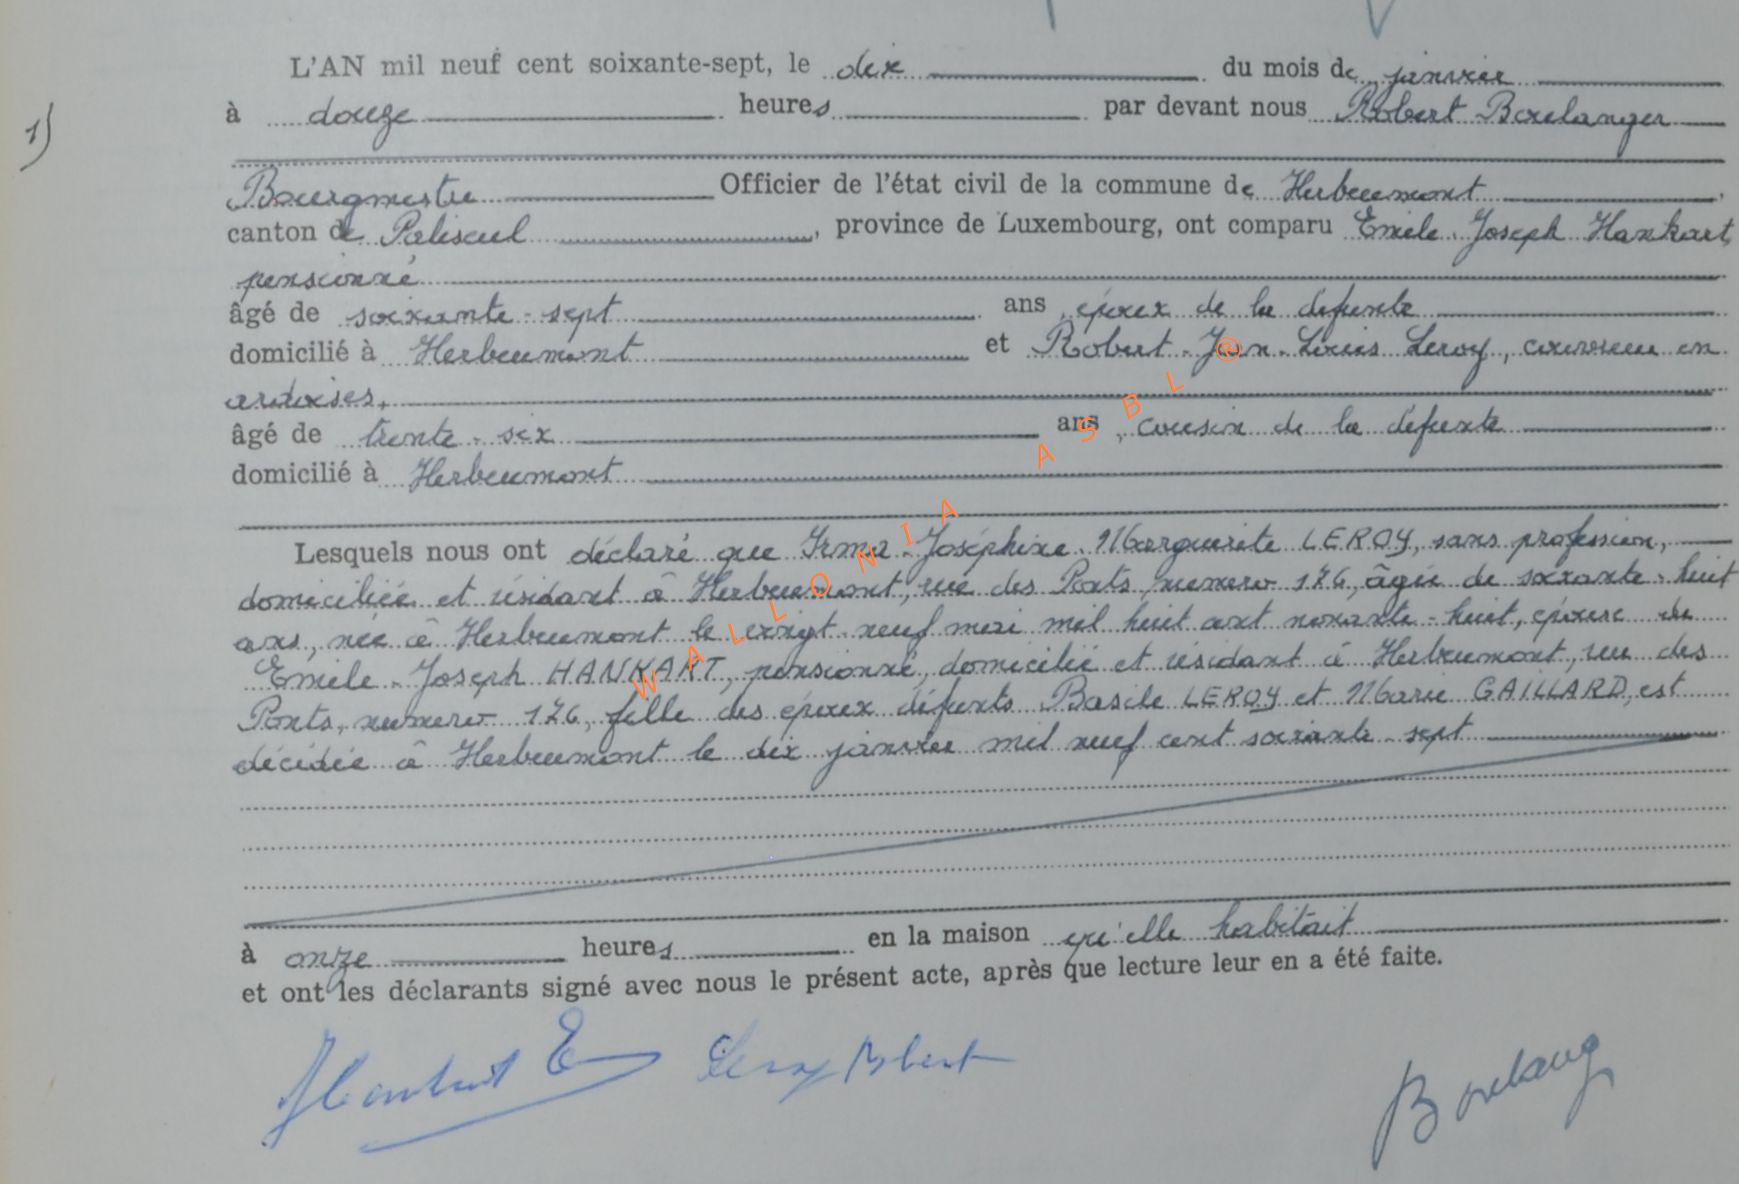 L'AN mil neuf cent soixante-sept, le dix du mois de janvier
1)
à douze heures par devant nous Robert Boulanger
Bourgmestre Officier de l'état civil de la commune de Herbeumont,
canton de Paliseul, province de Luxembourg, ont comparu Emile Joseph Hankart
pensionné
âgé de soixante-sept ans, époux de la défunte
domicilié à Herbeumont et Robert Jean Louis Leroy, couvreur en
ardoises,
âgé de trente-six ans, cousin de la défunte
domicilié à Herbeumont
Lesquels nous ont déclaré que Irma Joséphine Marguerite LEROY, sans profession,
domiciliée et résidant à Herbeumont, rue des Ponts, numéro 126, âgée de soixante-huit
ans, née à Herbeumont le vingt neuf mai mil huit cent nonante-huit, épouse de
Emile Joseph HANKART, pensionné, domicilié et résidant à Herbeumont, rue des
Ponts, numéro 126, fille des époux défunts Basile LEROY et Marie GAILLARD, est
décédée à Herbeumont le dix janvier mil neuf cent soixante-sept
à onze heures en la maison qu'elle habitait
et ont les déclarants signé avec nous le présent acte, après que lecture leur en a été faite.
Hankart E Leroy Robert Boulang
WALLONIA ASBL ®